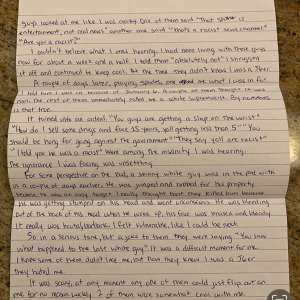 guys, looked at me like I was crazy. One of them said "That show is
entertainment, not and news" another one said "that's a racist news channel"
"Are you a racist?"
I couldn't believe what I was hearing. I had been living with these guys
now for about a week and a half. I told them "absolutely not" I shrugged
it off and continued to keep cool. But the time they didn't know I was a J6er.
A couple of days later, playing spades, one asked me what I was in for
I told him I was in
non. The rest of them immediately called me a white supremacist. By
is that true.
It turned into an ordeal. "You guys are getting a slap on the wrist"
"How do I sell some drugs and face 15 years, yall getting less than 5" "You
should be hung for going against the government" "They say yall are racist"
"I told you he was a racist" were among the insanity I was hearing.
The ignorance I was facing was unsettling.
For some perspective on the pod, a skinny white guy was in the pod with
us a couple of days earlier. He was jumped and robbed for his property
I really thought that they killed him because
he was getting stomped on his head and went unconscious. He was bleeding
out of the back of his head when he woke up, his face was bruised and bloody
It really was brutal/barbaric. I felt vulnerable, like I could be next.
So in a serious tone, but a joke to them they were saying "You know
what happened to the last white guy." It was a difficult moment for me
I knew some of them didn't like me, but now they knew I was a J6er
they hated me.
It was scary, at any moment any one of them could just flip out on
me for no reason. Luckily 2 of them were somewhat cool with me.